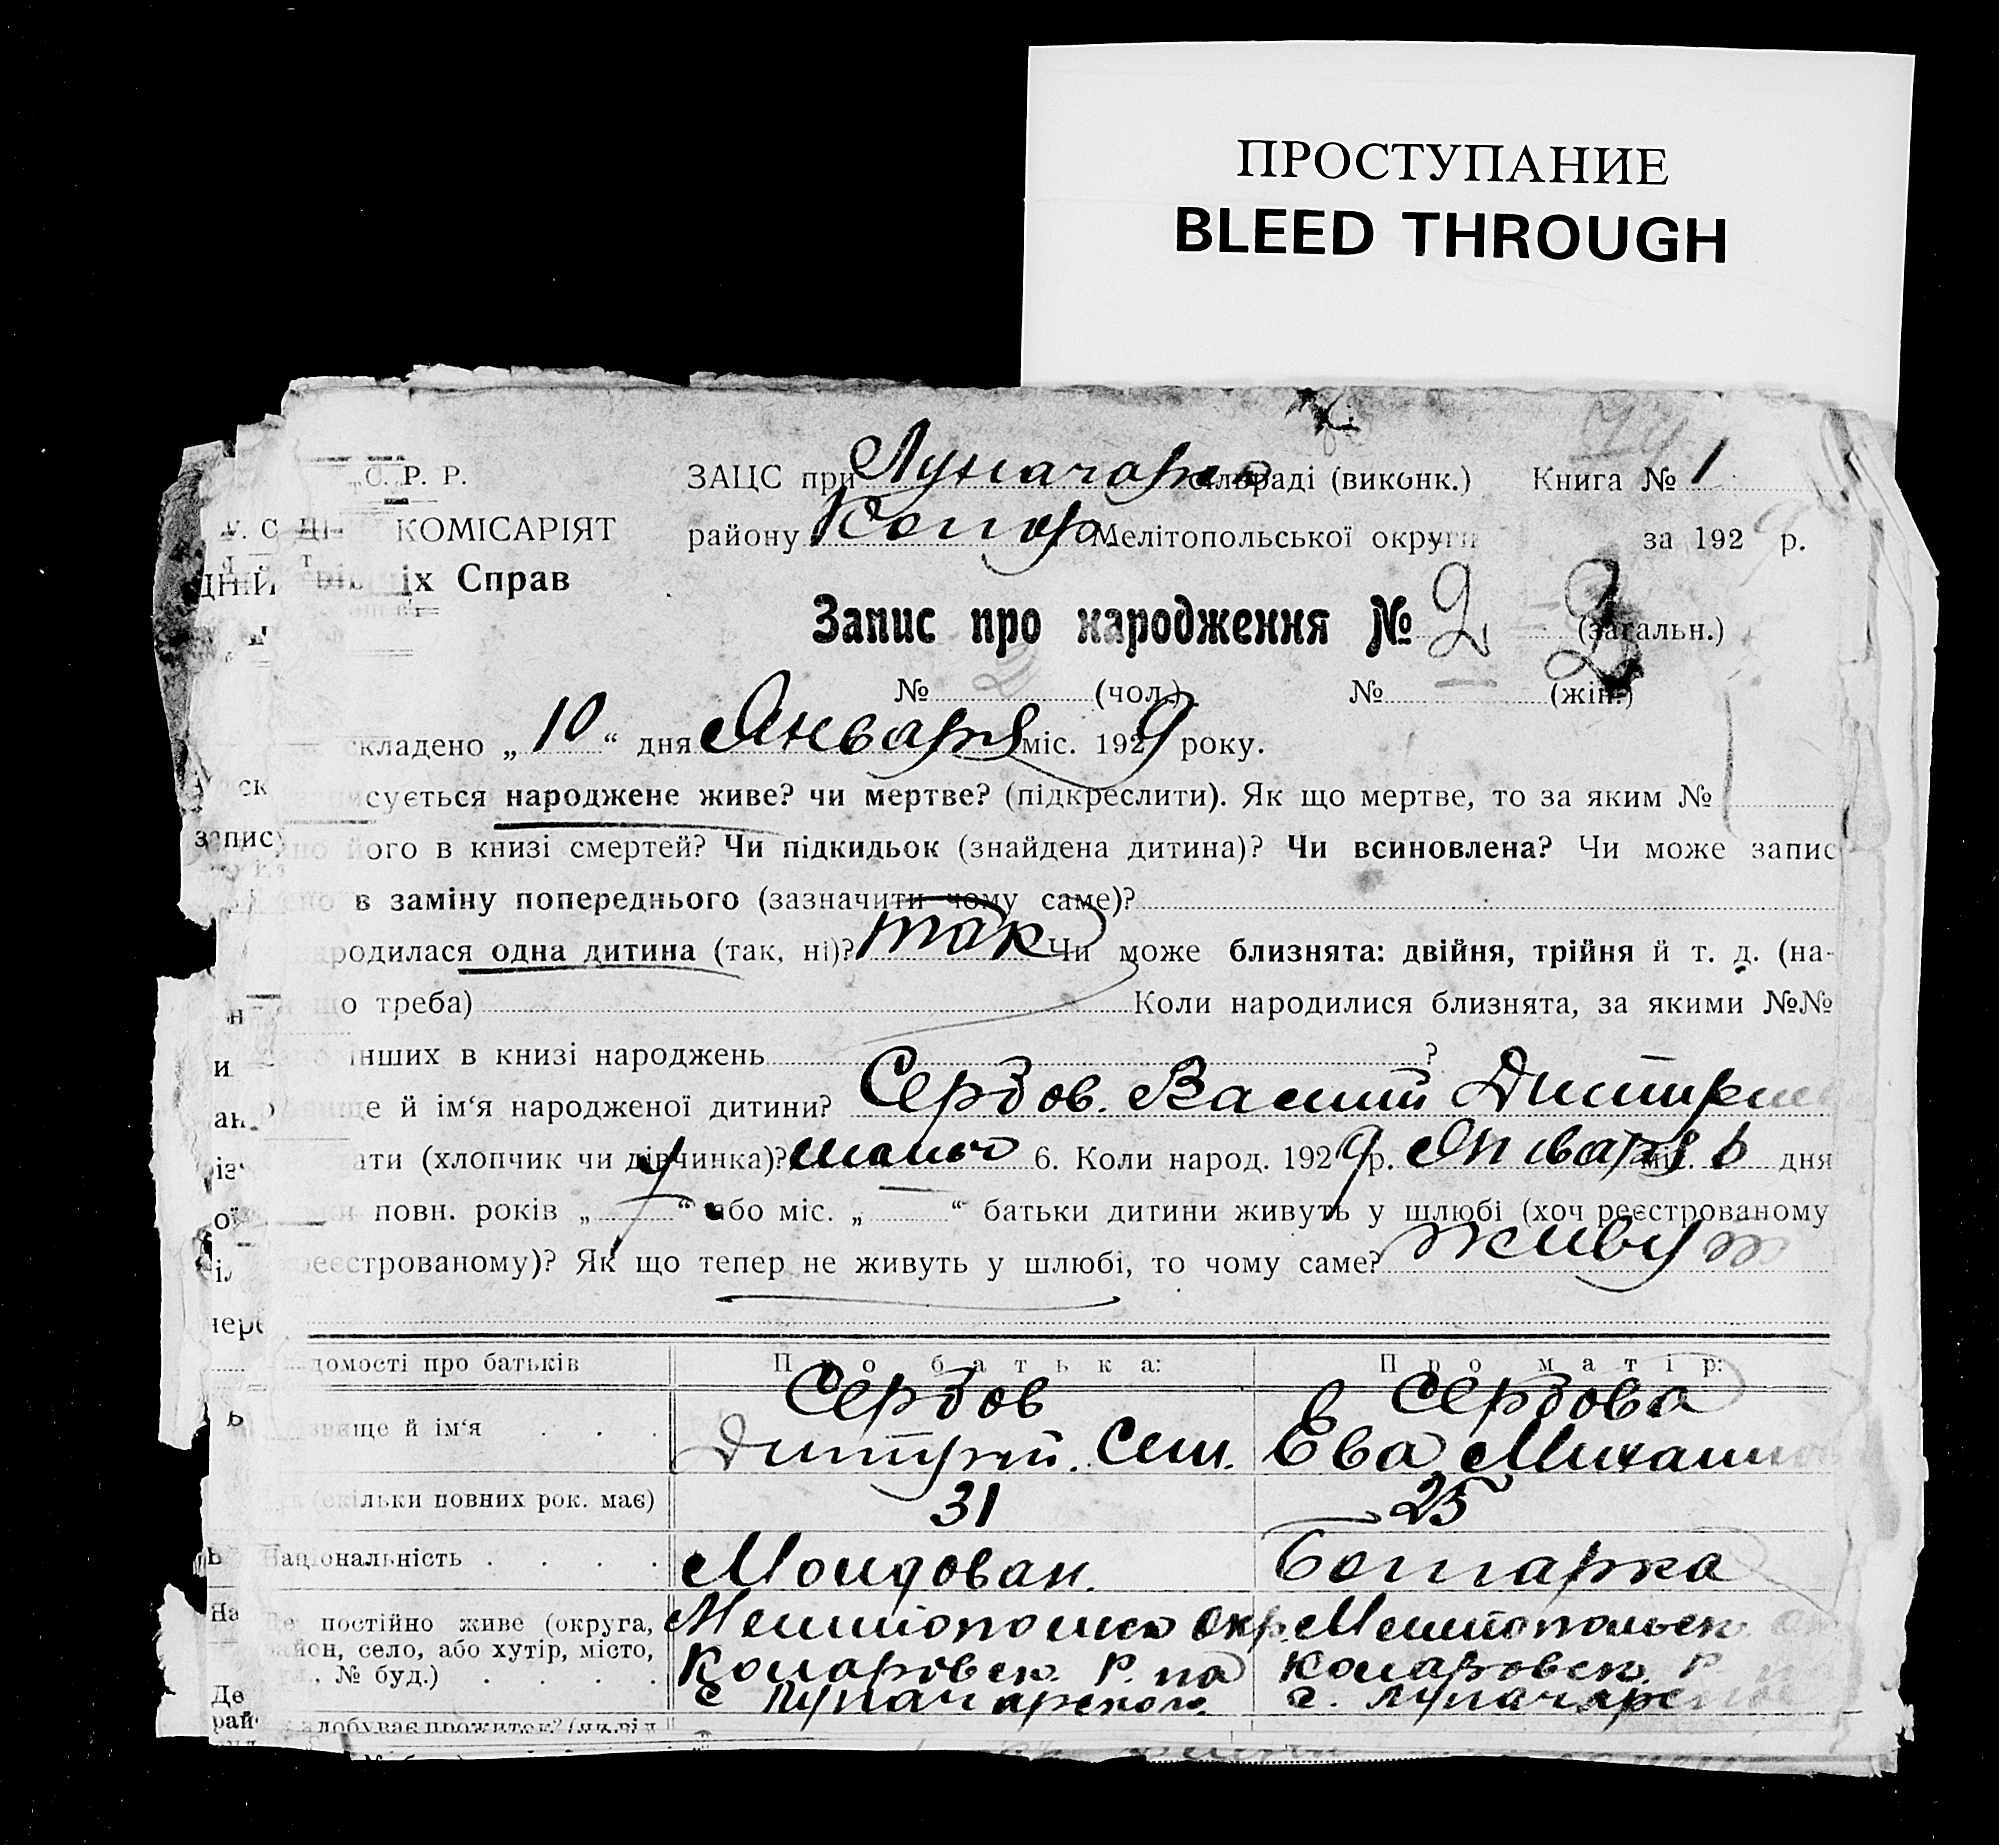 ПРОСТУПАНИЕ
BLEED THROUGH
С. Р. Р.
ЗАЦС при Луначарск сільраді (виконк.) Книга № 1
КОМІСАРІЯТ
району Мелітопольської округи за 1929 р.
Справ
Запис про народження № 2 (загальн.)
№ (чол.) № (жін.)
складено „10“ дня Января міс. 1929 року.
сується народжене живе? чи мертве? (підкреслити). Як що мертве, то за яким №
його в книзі смертей? Чи підкидьок (знайдена дитина)? Чи всиновлена? Чи може запис
в заміну попереднього (зазначити чому саме)?
родилася одна дитина (так, ні)? так Чи може близнята: двійня, трійня й т. д. (на-
що треба) Коли народилися близнята, за якими №№
інших в книзі народжень ?
й ім‘я народженої дитини? Сербов. Василий Дмитри
ати (хлопчик чи дівчинка)? 6. Коли народ. 1929 р. Января міс. 6 дня
повн. років „ “ або міс. „ “ батьки дитини живуть у шлюбі (хоч реєстрованому
реєстрованому)? Як що тепер не живуть у шлюбі, то чому саме? живут
домості про батьків Про батька: Про матір:
Сербов Сербова
звище й ім‘я Дмитрий. Сем. Ева Михайлов
(скільки повних рок. має) 31 25
Національність Молдован. Болгарка
Де постійно живе (округа, Мелитопольск окр. Мелитопольск ок
район, село, або хутір, місто, Комаровск. Р. на Комаровск. Р. н
№ буд.) с Луначарском. с. Луначарско